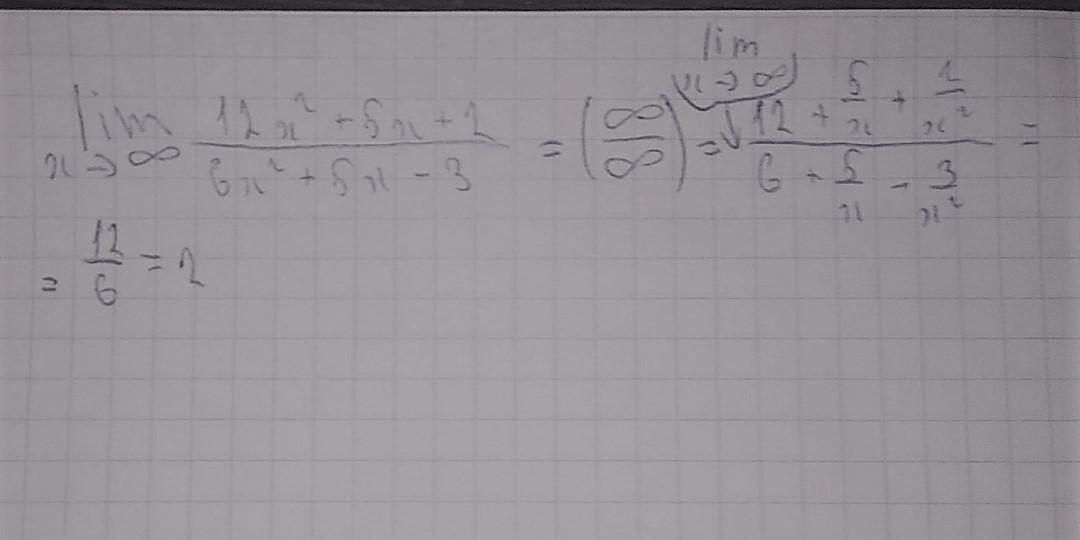 lim x→∞ (12x² + 5x + 2)/(6x² + 5x - 3) = (∞/∞) = lim x→∞ (12 + 5/x + 2/x²)/(6 + 5/x - 3/x²) =
= 12/6 = 2